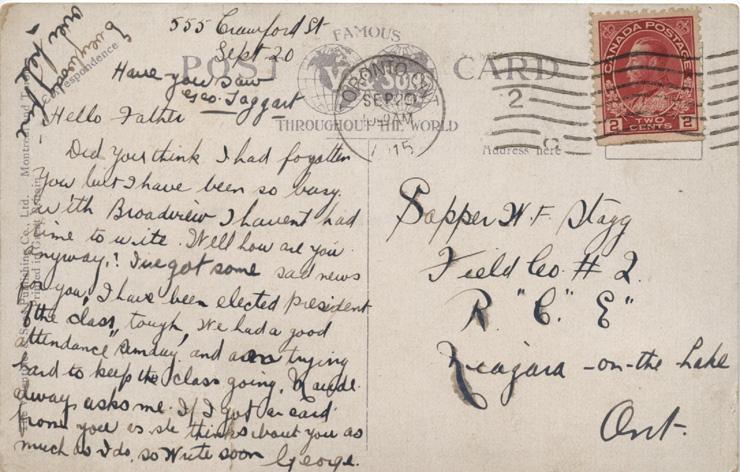 555 Crawford St
Sept 20
Have you saw
Geo. Taggart
Hello Father
Did you think I had forgotten
you but I have been so busy.
with Broadview I havent had
time to write. Well how are you
anyway.! I've got some sad news
for you, I have been elected president
of the class, tough, We had a good
attendance Sunday, and are trying
hard to keep the class going, Maude
always asks me. If I got a card
from you as she thinks about you as
much as I do, so Write soon
George.
Everybody
over red here
Correspondence
POST CARD
FAMOUS
THROUGHOUT THE WORLD
TORONTO, ONT
SEP 20
AM
1915
2
CANADA POSTAGE
2 TWO CENTS 2
Address here
Sapper W. F. Stagg
Field Co. # 2.
R. "C. E"
Niagara-on-the Lake
Ont.
Publishing Co., Ltd., Montreal and
Printed in Great Britain